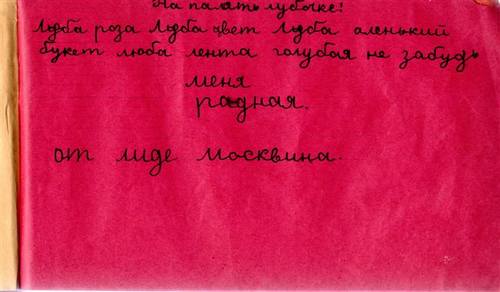 На память лубочке!
Люба роза Люба цвет Люба аленький
букет люба лента голубая не забудь
меня
радная.
от лиде Москвина.